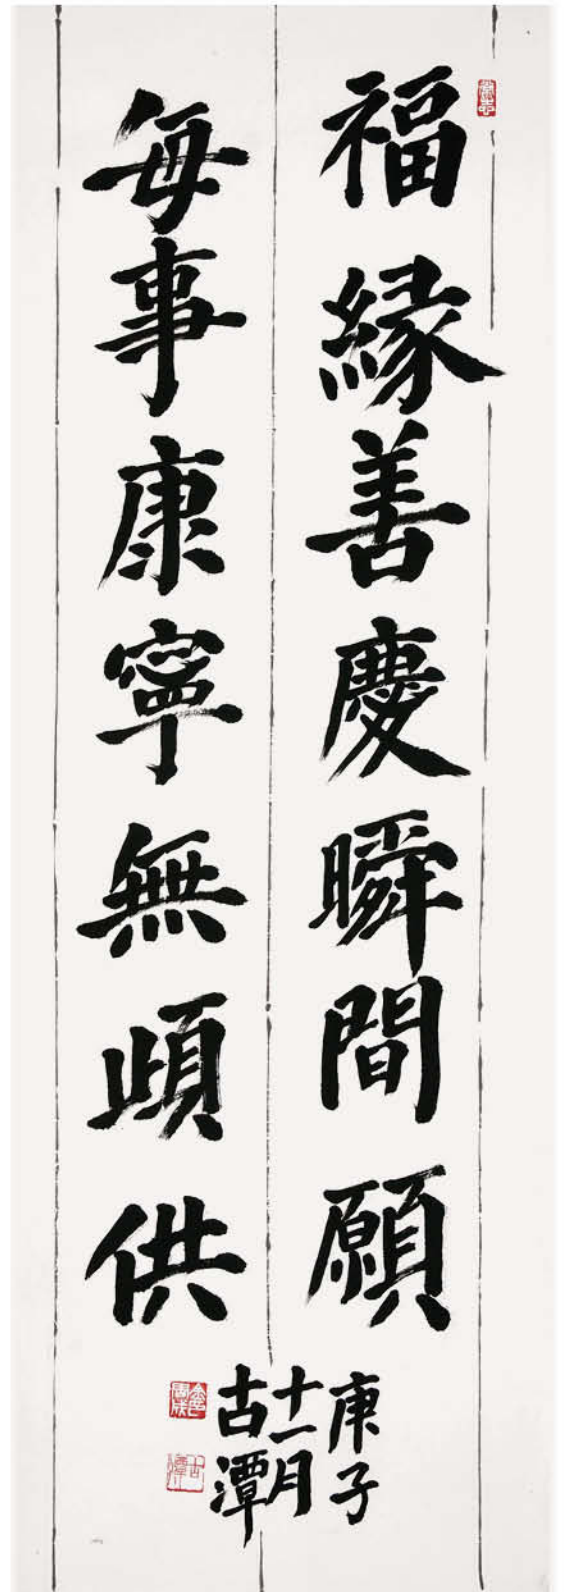 福縁善慶瞬間願
每事康寧無頉供
庚子
十一月
古潭
古潭